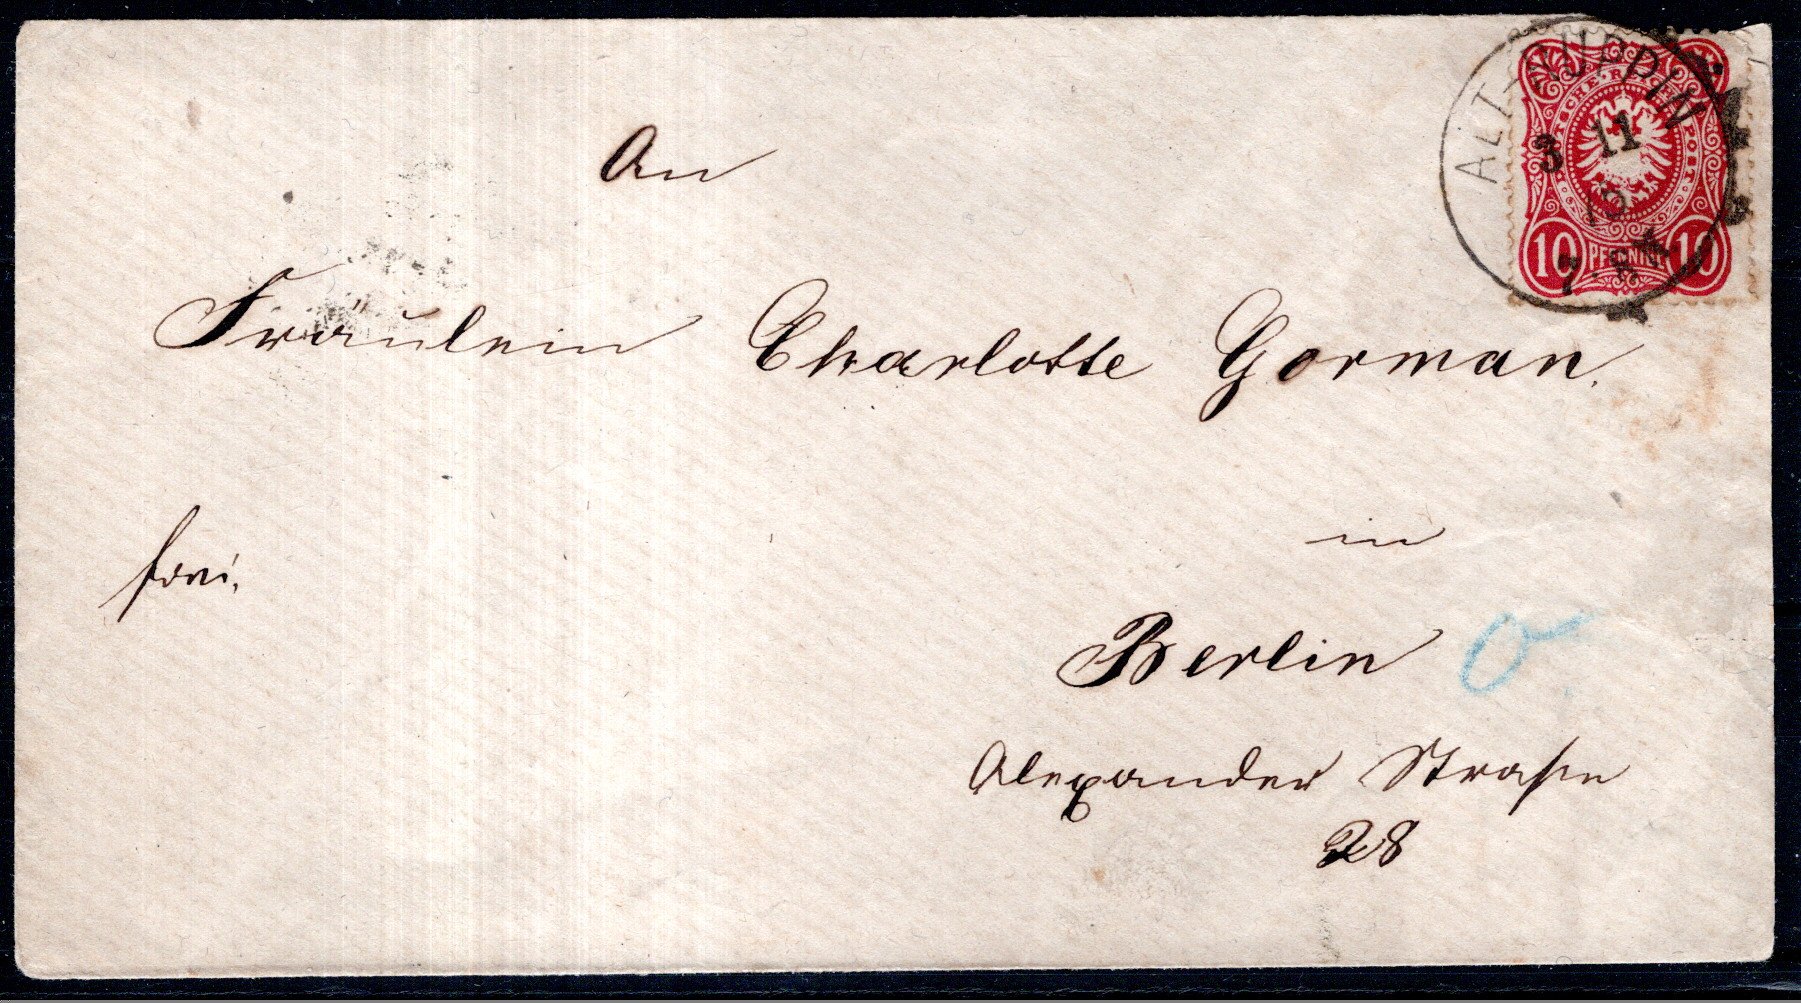 ALT-RUPPIN
3 11
DEUTSCHE REICHS POST
10 PFENNIG 10
An
Fräulein Charlotte Gorman.
frei.
in
Berlin O
Alexander Straße
28